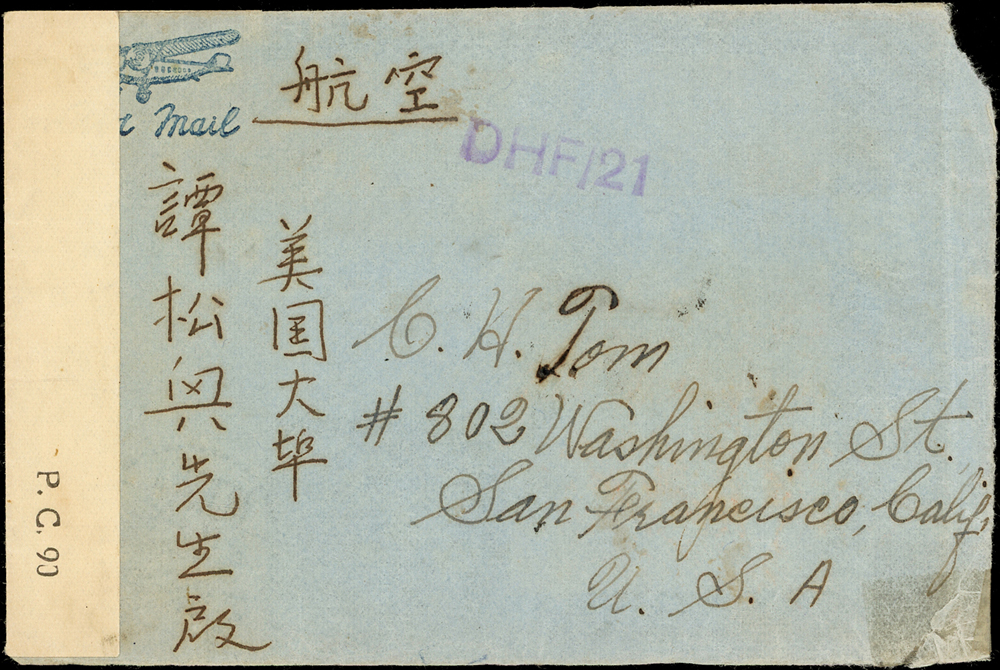 Mail
航空
DHF/21
譚松興先生啟
美国大埠
C. H. Tom
# 802 Washington St.
San Francisco, Calif.
U. S. A
P. C. 90